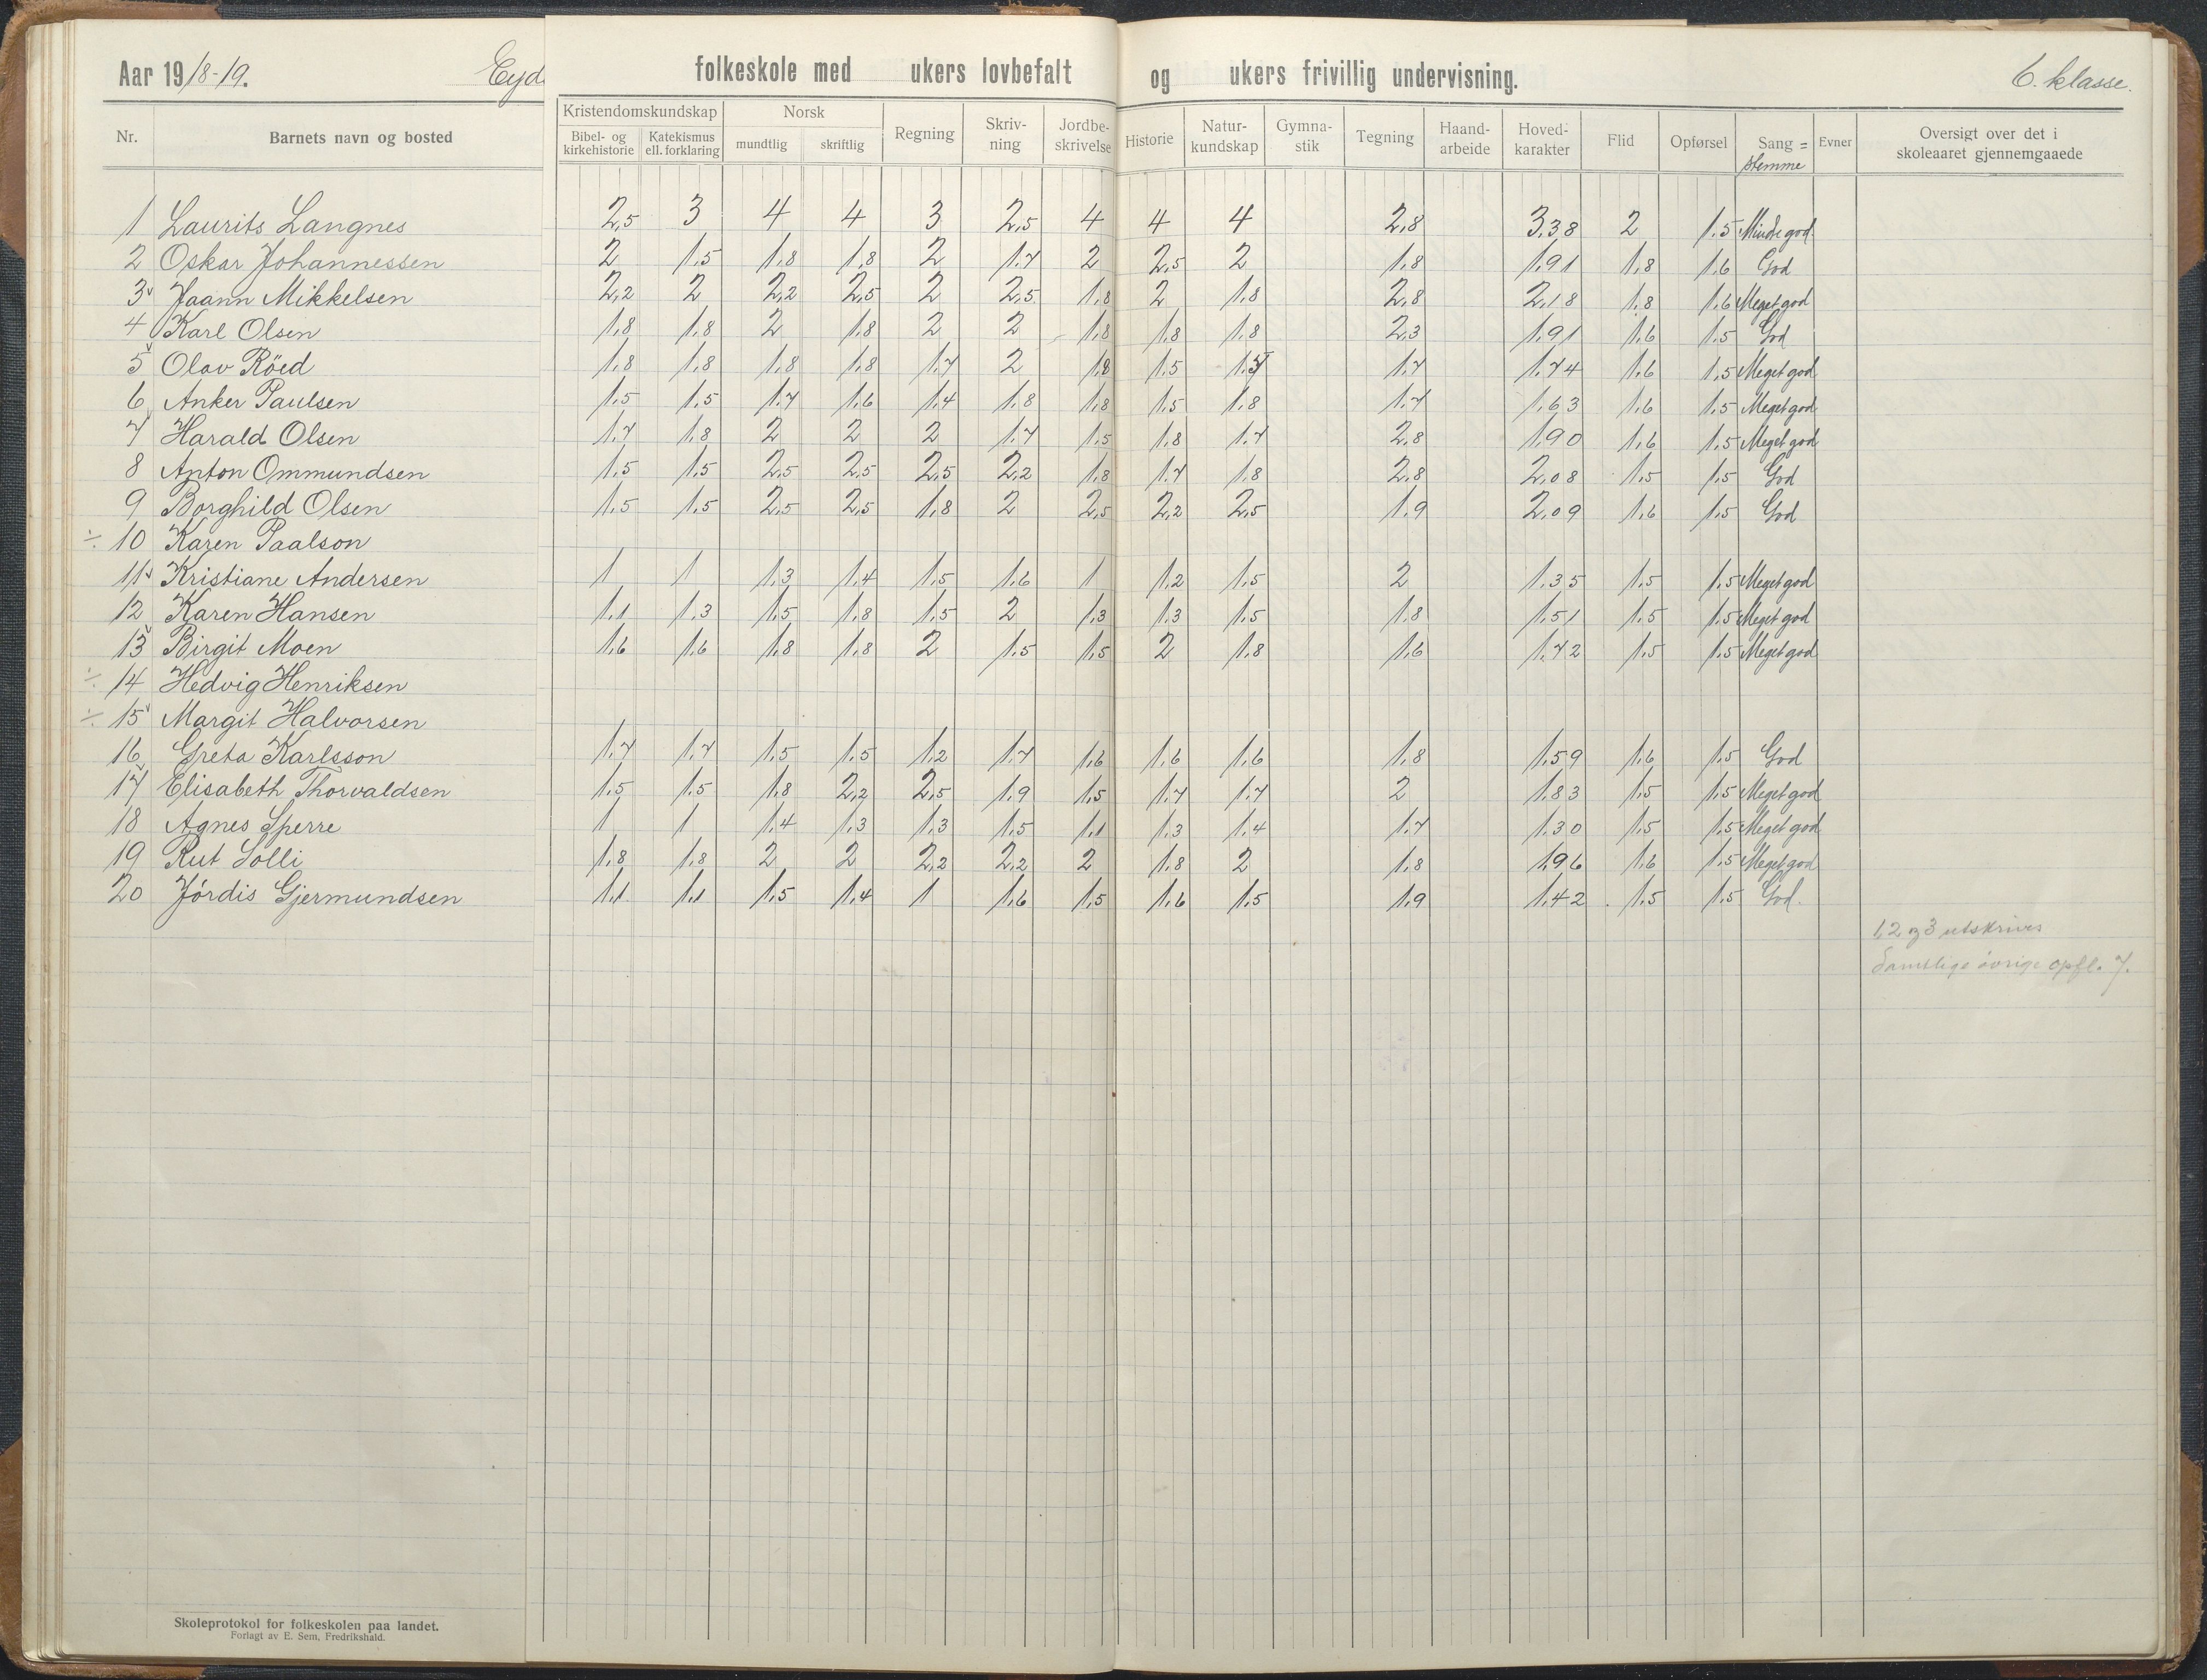 Aar 1918-19. Eyd folkeskole med ukers lovbefalt og ukers frivillig undervisning. 6. klasse.
Nr. Barnets navn og bosted Kristendomskundskap Bibel- og kirkehistorie Katekismus ell. forklaring Norsk mundtlig skriftlig Regning Skriv-ning Jordbe-skrivelse Historie Natur-kundskap Gymna-stik Tegning Haand-arbeide Hoved-karakter Flid Opførsel Sang = stemme Evner Oversigt over det i skoleaaret gjennemgaaede
1 Laurits Langnes 2,5 3 4 4 3 2,5 4 4 4 2,8 3,38 2 1.5 Mindre god
2 Oskar Johannessen 2 1.5 1,8 1,8 2 1.7 2 2,5 2 1,8 1,91 1,8 1,6 God
3 Jaann Mikkelsen 2,2 2 2,2 2,5 2 2,5 1,8 2 1,8 2,8 2,18 1,8 1,6 Meget god
4 Karl Olsen 1,8 1,8 2 1,8 2 2 1,8 1,8 1,8 2,3 1,91 1,6 1,5 God
5 Olav Röed 1,8 1,8 1,8 1,8 1,7 2 1,8 1,5 1,7 1,74 1,6 1,5 Meget god
6 Anker Paulsen 1,5 1,5 1,7 1,6 1,4 1,8 1,8 1,5 1,8 1,7 1,63 1,6 1,5 Meget god
7 Harald Olsen 1,7 1,8 2 2 2 1,7 1,5 1,8 1,7 2,8 1,90 1,6 1,5 Meget god
8 Anton Ommundsen 1,5 1,5 2,5 2,5 2,5 2,2 1,8 1,7 1,8 2,8 2,08 1,5 1,5 God
9 Borghild Olsen 1,5 1,5 2,5 2,5 1,8 2 2,5 2,2 2,5 1,9 2,09 1,6 1,5 God
÷ 10 Karen Paalson
11 Kristiane Andersen 1 1 1,3 1,4 1,5 1,6 1 1,2 1,5 2 1,35 1,5 1,5 Meget god
12 Karen Hansen 1,1 1,3 1,5 1,8 1,5 2 1,3 1,3 1,5 1,8 1,51 1,5 1,5 Meget god
13 Birgit Moen 1,6 1,6 1,8 1,8 2 1,5 1,5 2 1,8 1,6 1,72 1,5 1,5 Meget god
÷ 14 Hedvig Henriksen
÷ 15 Margit Halvorsen
16 Greta Karlsson 1,7 1,7 1,5 1,5 1,2 1,7 1,6 1,6 1,6 1,8 1,59 1,6 1,5 God
17 Elisabeth Thorvaldsen 1,5 1,5 1,8 2,2 2,5 1,9 1,5 1,7 1,7 2 1,83 1,5 1,5 Meget god
18 Agnes Sperre 1 1 1,4 1,3 1,3 1,5 1,1 1,3 1,4 1,7 1,30 1,5 1,5 Meget god
19 Rut Solli 1,8 1,8 2 2 2,2 2,2 2 1,8 2 1,8 1,96 1,6 1,5 Meget god
20 Jórdis Gjermundsen 1,1 1,1 1,5 1,4 1 1,6 1,5 1,6 1,5 1,9 1,42 1,5 1,5 God.
1, 2 og 3 utskrives
Samtlige övrige opfl. 7.
Skoleprotokol for folkeskolen paa landet.
Forlagt av E. Sem, Fredrikshald.